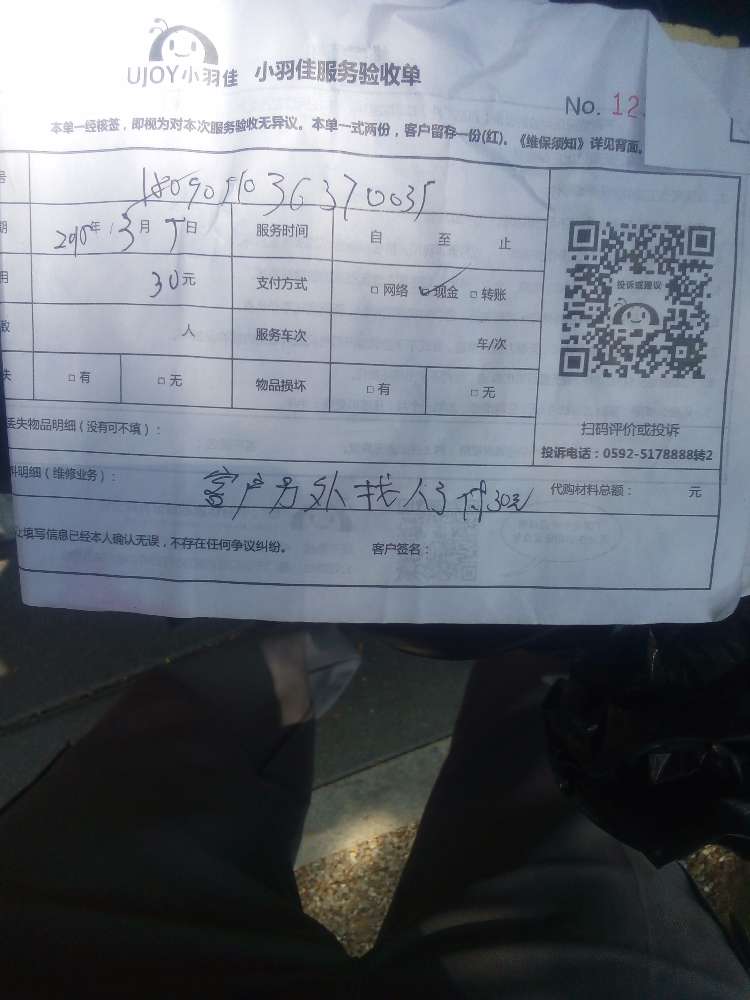 UJOY小羽佳 小羽佳服务验收单
No. 12
本单一经核签，即视为对本次服务验收无异议。本单一式两份，客户留存一份(红)。《维保须知》详见背面。
号
期 年 3月 日 服务时间 自 至 止
用 30元 支付方式 □ 网络 ☑ 现金 □ 转账
数 人 服务车次 车/次
失 □ 有 □ 无 物品损坏 □ 有 □ 无
投诉或建议
扫码评价或投诉
投诉电话：0592-5178888转2
丢失物品明细（没有可不填）：
料明细（维修业务）： 客户另外找人了付30元 代购材料总额： 元
上填写信息已经本人确认无误，不存在任何争议纠纷。 客户签名：